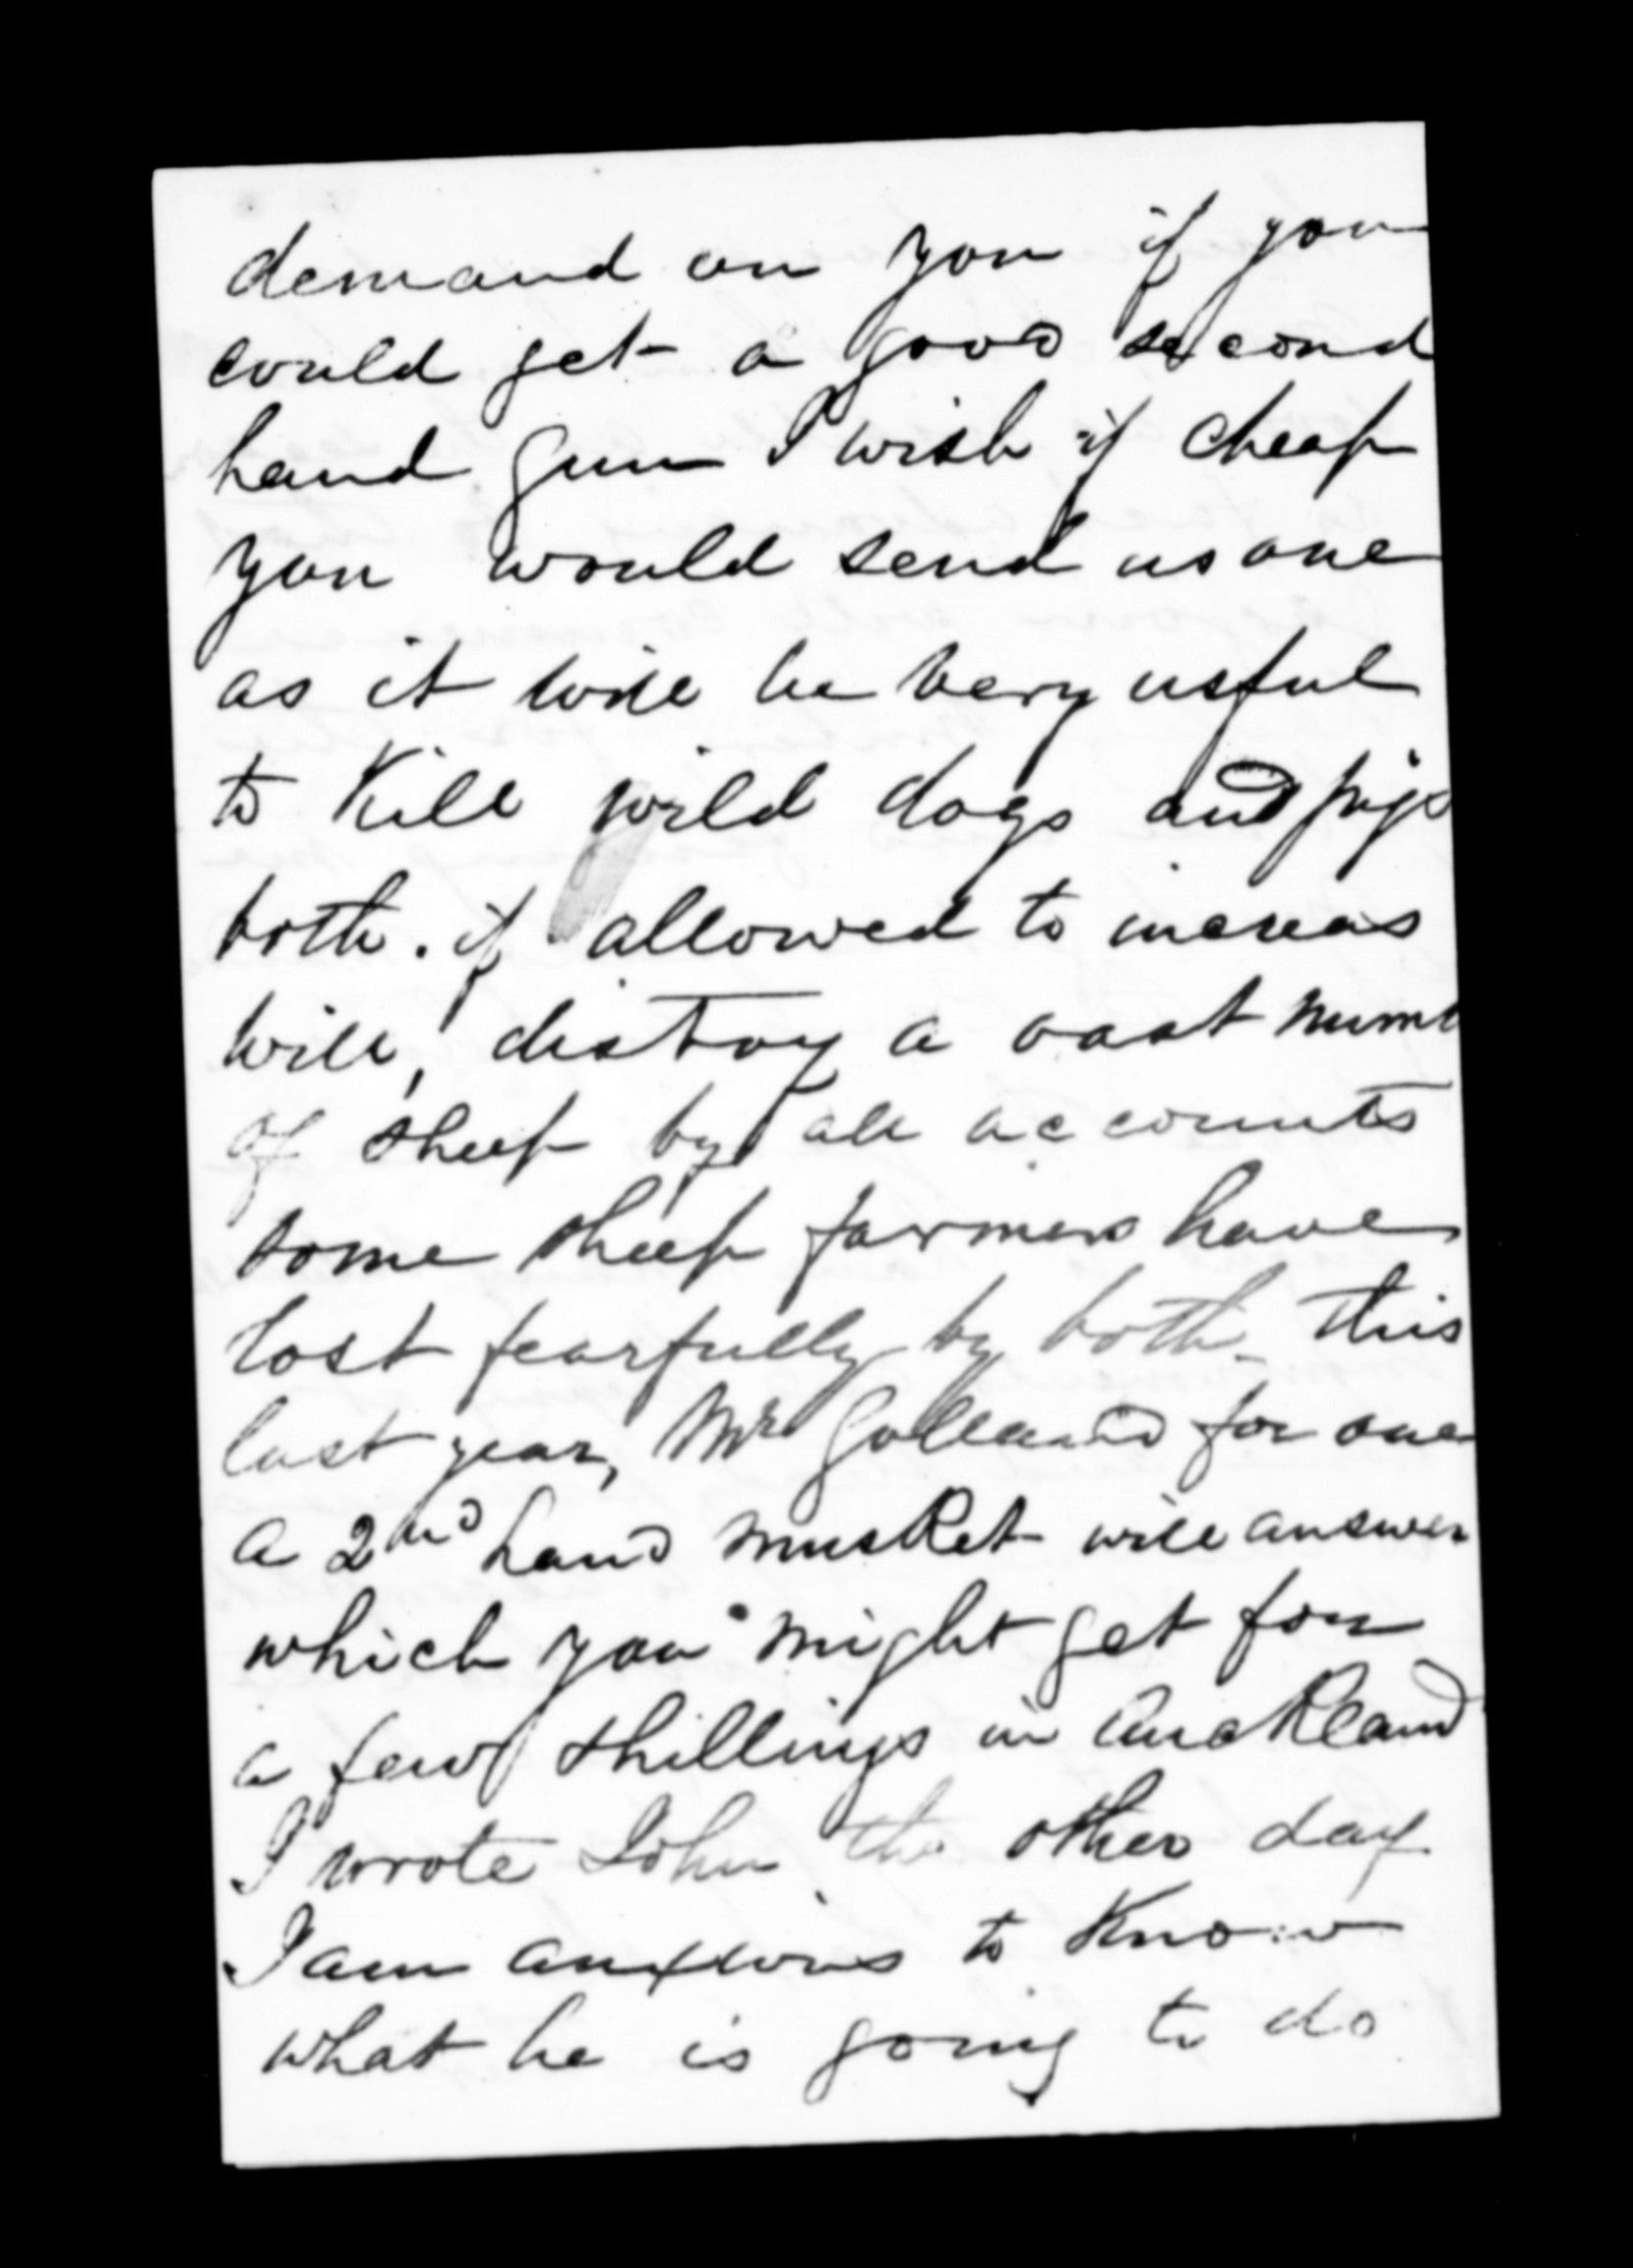 demand on you if you
could get a good second
hand gun I wish if cheap
you would send us one
as it will be very usful
to Kill wild dogs and pigs
both. if allowed to increas
will, distroy a vast numb
of sheep by all accounts
some sheep farmers have
lost fearfully by both this
last year, Mr Golland for one
a 2nd hand musket will answer
which you might get for
a few shillings in Auckland
I wrote John the other day
I am anxious to Know
what he is going to do